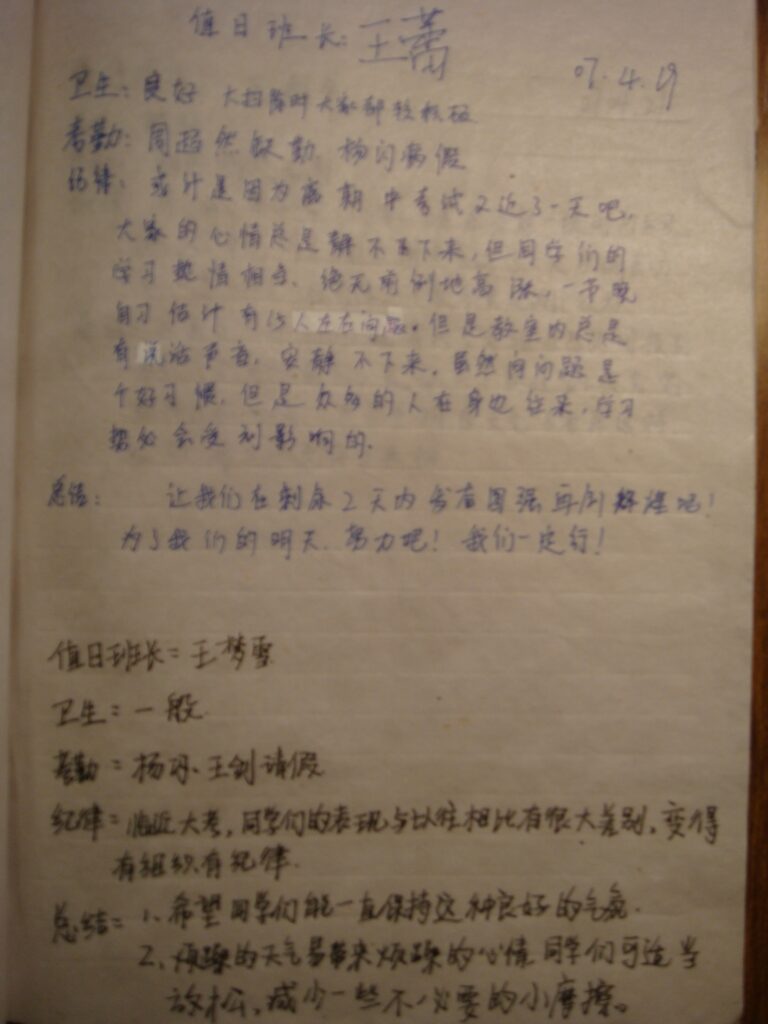 值日班长：王蕾
07.4.19
卫生：良好 大扫除时大家都较积极
考勤：周超然缺勤 杨闪病假
纪律：或许是因为离期中考试又近了一天吧，
大家的心情总是静不下来，但同学们的
学习热情相当、绝无前例地高涨，一节晚
自习估计有15人左右问题。但是教室内总是
有说话声音，安静不下来，虽然问问题是
个好习惯，但是众多的人在身边往来，学习
势必会受到影响的。
总结： 让我们在剩余2天内发奋图强再创辉煌吧！
为了我们的明天，努力吧！我们一定行！
值日班长：王梦雪
卫生：一般
考勤：杨 、王剑请假
纪律：临近大考，同学们的表现与以往相比有很大差别，变得
有组织有纪律
总结：1、希望同学们能一直保持这种良好的气氛
2、烦躁的天气易带来烦躁的心情 同学们可适当
放松，减少一些不必要的小摩擦。